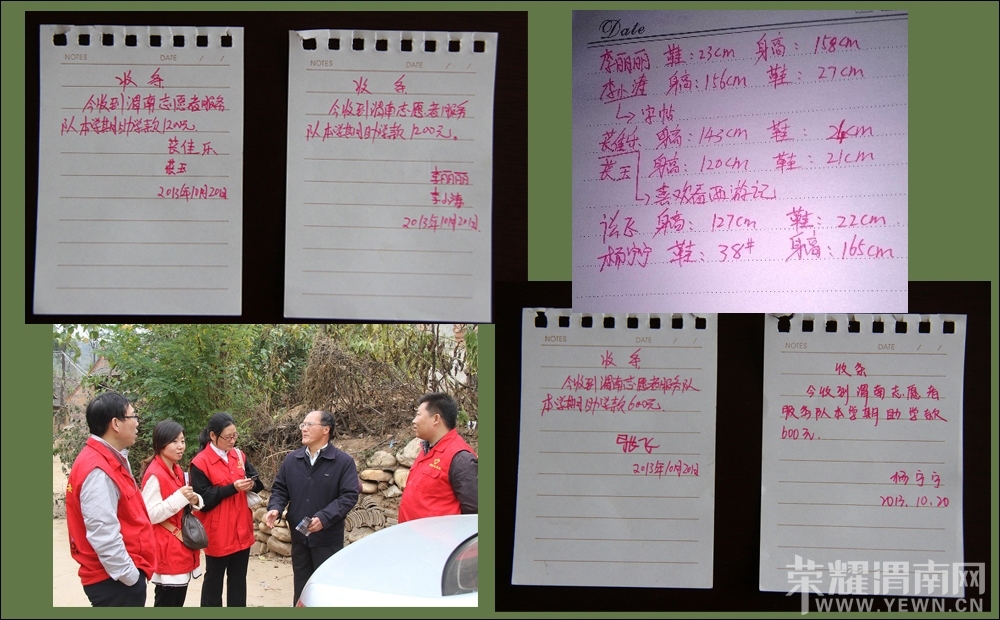 NOTES DATE / /
收条
今收到渭南志愿者服务
队本学期助学款1200元
裴佳乐
裴玉
2013年10月20日
NOTES DATE / /
收条
今收到渭南志愿者服务
队本学期助学款1200元。
李丽丽
李小涛
2013年10月20日
Date
李丽丽 鞋:23cm 身高:158cm
李小涛 身高:156cm 鞋:27cm
字帖
裴佳乐 身高:143cm 鞋:24cm
裴玉 身高:120cm 鞋:21cm
喜欢看西游记
身高:127cm 鞋:22cm
杨宁宁 鞋:38# 身高:165cm
NOTES DATE / /
收条
今收到渭南志愿者服务队
本学期助学款600元.
张飞
2013年10月20日
NOTES DATE / /
收条
今收到渭南志愿者
服务队本学期助学款
600元.
杨宁宁
2013.10.20
荣耀渭南网
WWW.YEWN.CN